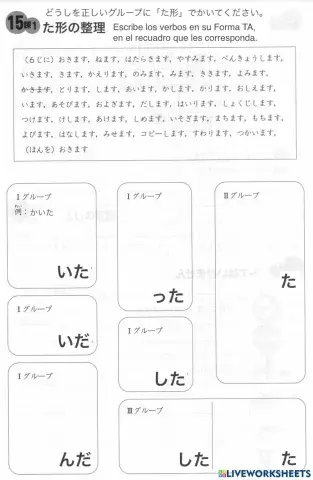 どうしを正しいグループに「た形」でかいてください。
15課1
た形の整理
Escribe los verbos en su Forma TA,
en el recuadro que les corresponda.
(6じに)おきます、ねます、はたらきます、やすみます、べんきょうします、
いきます、きます、かえります、のみます、みます、ききます、よみます、
かきます、とります、します、あいます、かします、かります、おしえます、
います、あそびます、およぎます、だします、はいります、しょくじします、
つけます、けします、あけます、しめます、いそぎます、まちます、もちます、
よびます、はなします、みせます、コピーします、すわります、つかいます、
(ほんを)おきます
Iグループ
例:かいた
いた
Iグループ
った
IIグループ
た
Iグループ
いだ
Iグループ
した
Iグループ
んだ
IIIグループ
した
た
LIVEWORKSHEETS